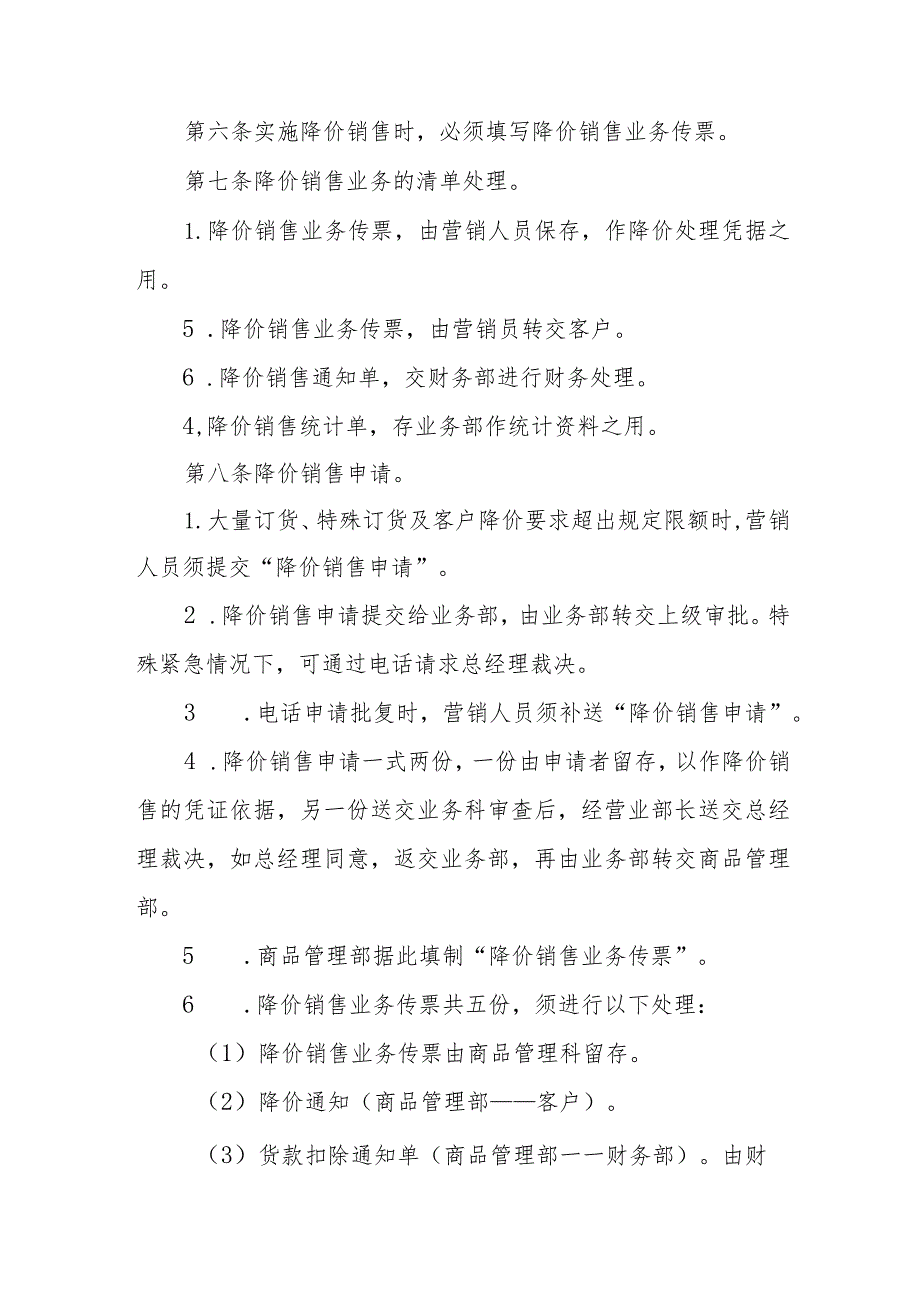 第六条实施降价销售时，必须填写降价销售业务传票。
第七条降价销售业务的清单处理。
1.降价销售业务传票，由营销人员保存，作降价处理凭据之
用。
5 .降价销售业务传票，由营销员转交客户。
6 .降价销售通知单，交财务部进行财务处理。
4,降价销售统计单，存业务部作统计资料之用。
第八条降价销售申请。
1.大量订货、特殊订货及客户降价要求超出规定限额时,营销
人员须提交“降价销售申请”。
2 .降价销售申请提交给业务部，由业务部转交上级审批。特
殊紧急情况下，可通过电话请求总经理裁决。
3 .电话申请批复时，营销人员须补送“降价销售申请”。
4 .降价销售申请一式两份，一份由申请者留存，以作降价销
售的凭证依据，另一份送交业务科审查后，经营业部长送交总经
理裁决，如总经理同意，返交业务部，再由业务部转交商品管理
部。
5 .商品管理部据此填制“降价销售业务传票”。
6 .降价销售业务传票共五份，须进行以下处理：
（1）降价销售业务传票由商品管理科留存。
（2）降价通知（商品管理部——客户）。
（3）货款扣除通知单（商品管理部一一财务部）。由财